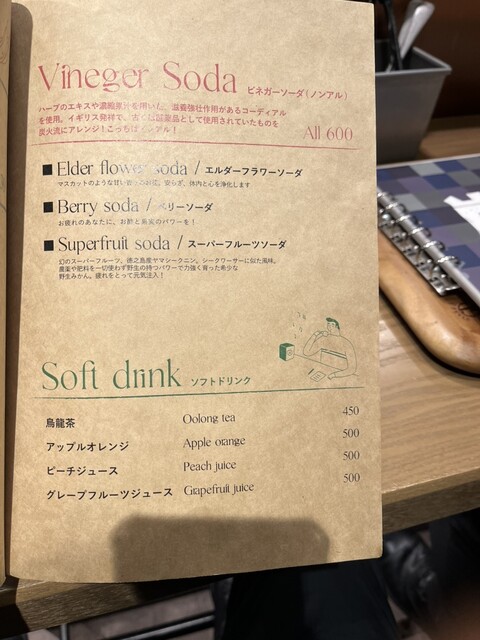 Vineger Soda ビネガーソーダ(ノンアル)
ハーブのエキスや濃縮果汁を用いた、滋養強壮作用があるコーディアル
を使用。イギリス発祥で、古くは医薬品として使用されていたものを
炭火流にアレンジ!こっちはノンアル!
All 600
■ Elder flower soda / エルダーフラワーソーダ
マスカットのような甘い香りのお花。安らぎ、体内と心を浄化します
■ Berry soda / ベリーソーダ
お疲れのあなたに、お酢と果実のパワーを!
■ Superfruit soda / スーパーフルーツソーダ
幻のスーパーフルーツ、徳之島産ヤマシークニン。シークワーサーに似た風味。
農薬や肥料を一切使わず野生の持つパワーで力強く育った希少な
野生みかん。疲れをとって元気注入!
Soft drink ソフトドリンク
烏龍茶 Oolong tea 450
アップルオレンジ Apple orange 500
ピーチジュース Peach juice 500
グレープフルーツジュース Grapefruit juice 500